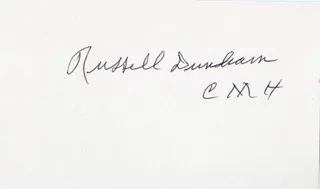 Russell Dunham
C M H